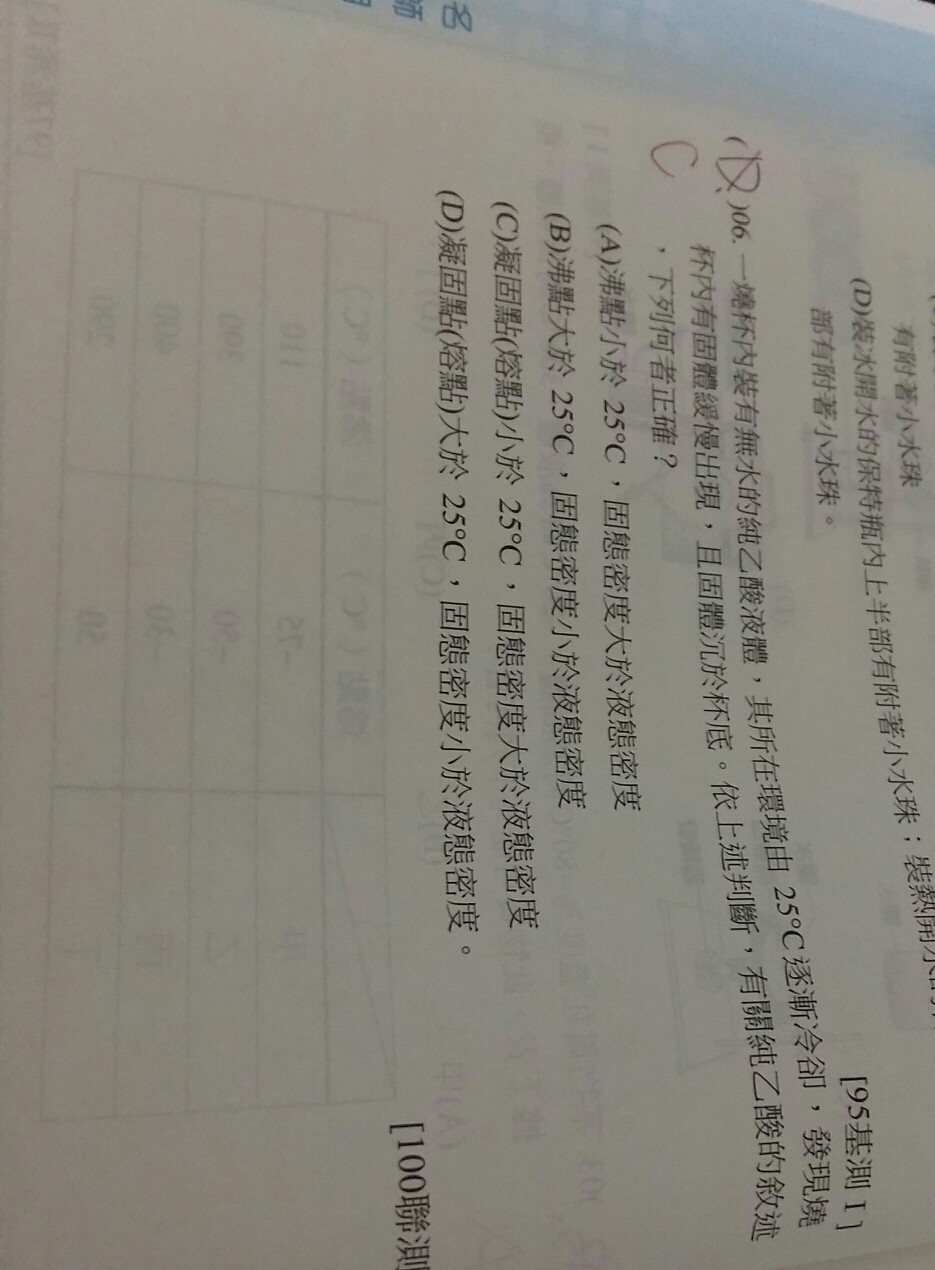 有附著小水珠
(D)裝冰開水的保特瓶內上半部有附著小水珠；裝熱開水
部有附著小水珠。
[95基測 I ]
(D)06. 一燒杯內裝有無水的純乙酸液體，其所在環境由 25°C 逐漸冷卻，發現燒
杯內有固體緩慢出現，且固體沉於杯底。依上述判斷，有關純乙酸的敘述
，下列何者正確？
C
(A)沸點小於 25°C，固態密度大於液態密度
(B)沸點大於 25°C，固態密度小於液態密度
(C)凝固點(熔點)小於 25°C，固態密度大於液態密度
(D)凝固點(熔點)大於 25°C，固態密度小於液態密度。
[100聯測
名
師